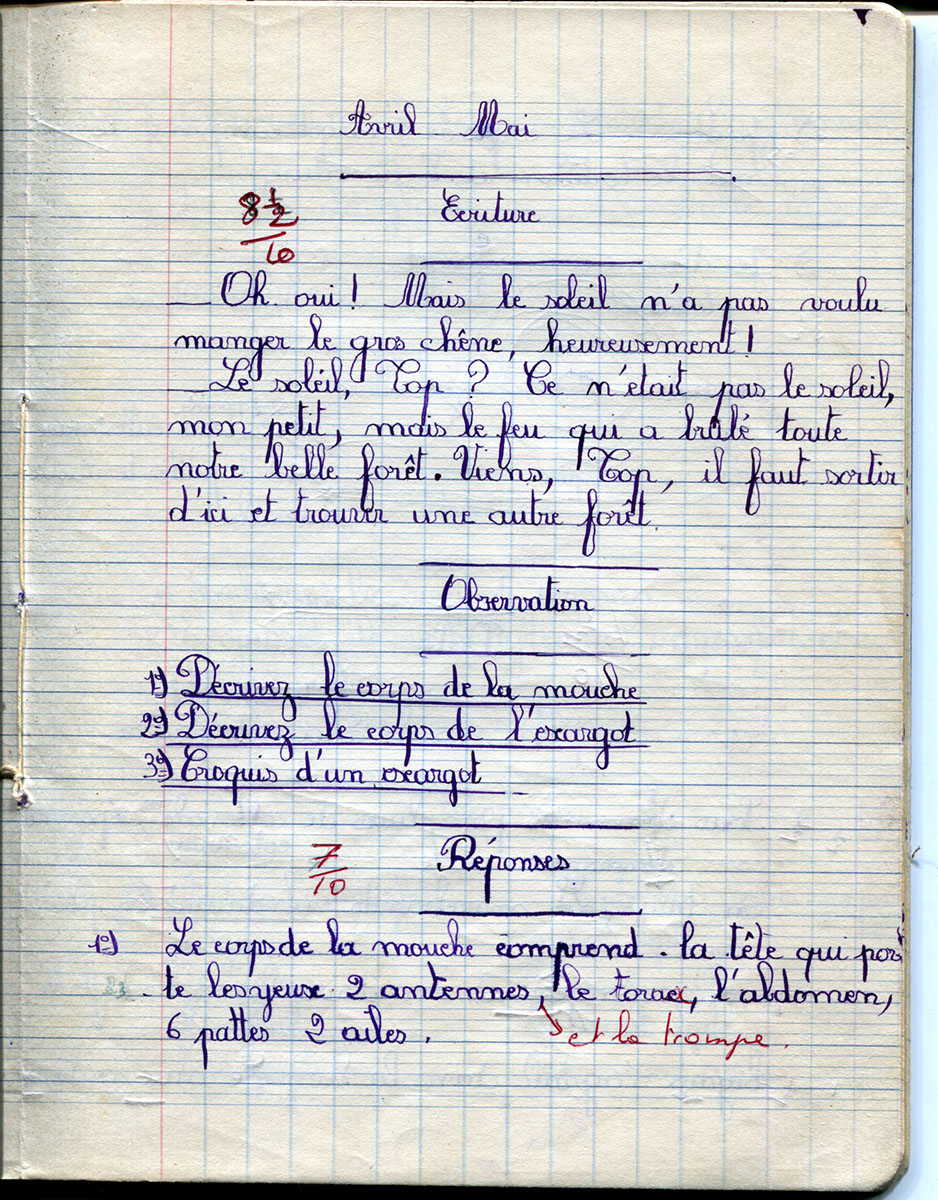 Avril Mai
8 1/2
/10
Ecriture
_ Oh oui ! Mais le soleil n'a pas voulu
manger le gros chêne, heureusement !
_ Le soleil, Top ? Ce n'était pas le soleil,
mon petit, mais le feu qui a brûlé toute
notre belle forêt. Viens, Top, il faut sortir
d'ici et trouver une autre forêt.
Observation
1º) Décrivez le corps de la mouche
2º) Décrivez le corps de l'escargot
3º) Croquis d'un escargot
7/10
Réponses
1º) Le corps de la mouche comprend . la tête qui por
te les yeux 2 antennes, le torax, l'abdomen,
6 pattes 2 ailes .
et la trompe.